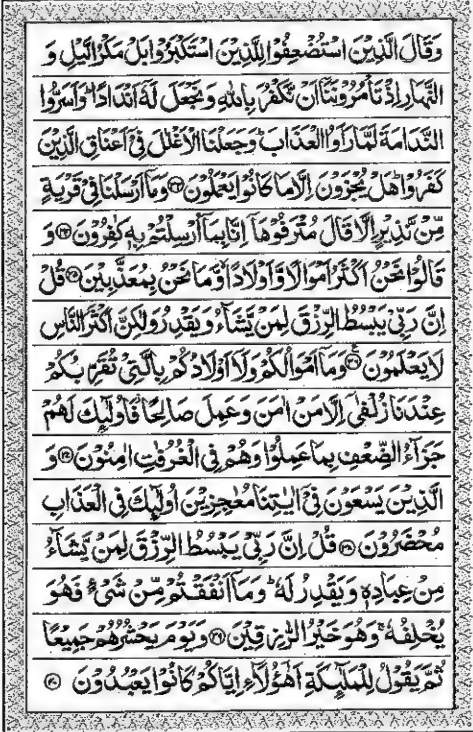 وَقَالَ الَّذِيْنَ اسْتُضْعِفُوْا لِلَّذِيْنَ اسْتَكْبَرُوْا بَلْ مَكْرُ الَّيْلِ وَ
النَّهَارِ اِذْ تَاْمُرُوْنَنَآ اَنْ نَّكْفُرَ بِاللّٰهِ وَ نَجْعَلَ لَهٗٓ اَنْدَادًا ؕ وَ اَسَرُّوا
النَّدَامَةَ لَمَّا رَاَوُا الْعَذَابَ ؕ وَ جَعَلْنَا الْاَغْلٰلَ فِيْٓ اَعْنَاقِ الَّذِيْنَ
كَفَرُوْا ؕ هَلْ يُجْزَوْنَ اِلَّا مَا كَانُوْا يَعْمَلُوْنَ ﴿۳۳﴾ وَ مَآ اَرْسَلْنَا فِيْ قَرْيَةٍ
مِّنْ نَّذِيْرٍ اِلَّا قَالَ مُتْرَفُوْهَآ اِنَّا بِمَآ اُرْسِلْتُمْ بِهٖ كٰفِرُوْنَ ﴿۳۴﴾ وَ
قَالُوْا نَحْنُ اَكْثَرُ اَمْوَالًا وَّ اَوْلَادًا ۙ وَّ مَا نَحْنُ بِمُعَذَّبِيْنَ ﴿۳۵﴾ قُلْ
اِنَّ رَبِّيْ يَبْسُطُ الرِّزْقَ لِمَنْ يَّشَآءُ وَ يَقْدِرُ وَ لٰكِنَّ اَكْثَرَ النَّاسِ
لَا يَعْلَمُوْنَ ﴿۳۶﴾ وَ مَآ اَمْوَالُكُمْ وَ لَآ اَوْلَادُكُمْ بِالَّتِيْ تُقَرِّبُكُمْ
عِنْدَنَا زُلْفٰٓى اِلَّا مَنْ اٰمَنَ وَ عَمِلَ صَالِحًا ؗ فَاُولٰٓئِكَ لَهُمْ
جَزَآءُ الضِّعْفِ بِمَا عَمِلُوْا وَ هُمْ فِي الْغُرُفٰتِ اٰمِنُوْنَ ﴿۳۷﴾ وَ
الَّذِيْنَ يَسْعَوْنَ فِيْٓ اٰيٰتِنَا مُعٰجِزِيْنَ اُولٰٓئِكَ فِي الْعَذَابِ
مُحْضَرُوْنَ ﴿۳۸﴾ قُلْ اِنَّ رَبِّيْ يَبْسُطُ الرِّزْقَ لِمَنْ يَّشَآءُ
مِنْ عِبَادِهٖ وَ يَقْدِرُ لَهٗ ؕ وَ مَآ اَنْفَقْتُمْ مِّنْ شَيْءٍ فَهُوَ
يُخْلِفُهٗ ۚ وَ هُوَ خَيْرُ الرّٰزِقِيْنَ ﴿۳۹﴾ وَ يَوْمَ يَحْشُرُهُمْ جَمِيْعًا
ثُمَّ يَقُوْلُ لِلْمَلٰٓئِكَةِ اَهٰٓؤُلَآءِ اِيَّاكُمْ كَانُوْا يَعْبُدُوْنَ ﴿۴۰﴾